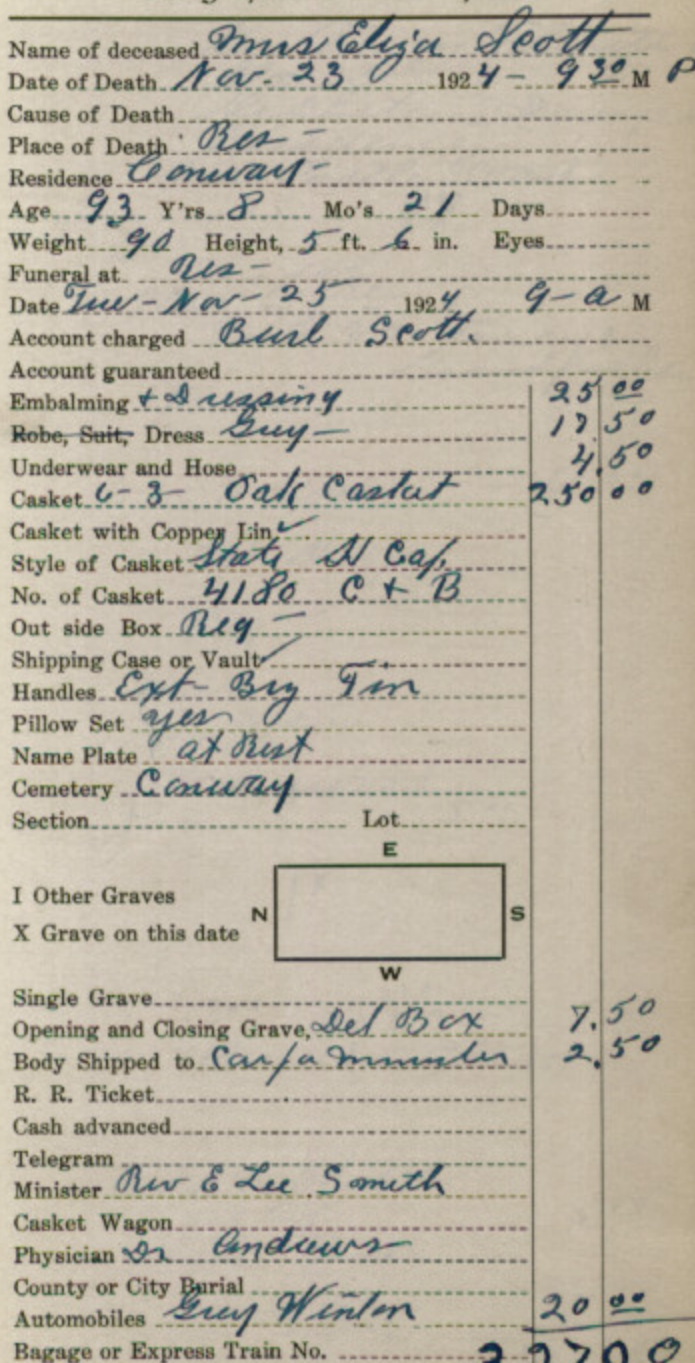 Name of deceased Mrs Eliza Scott
Date of Death Nov- 23 1924 - 9 30 M P
Cause of Death
Place of Death Res -
Residence Conway -
Age 93 Y'rs 8 Mo's 21 Days
Weight 90 Height, 5 ft. 6 in. Eyes
Funeral at Res -
Date Tue - Nov - 25 1924 9 - a M
Account charged Burl Scott.
Account guaranteed
Embalming + Dressing 25 00
Robe, Suit, Dress Grey - 17 50
Underwear and Hose 4.50
Casket 6-3- Oak Casket 250 00
Casket with Copper Lin ✓
Style of Casket State Cap
No. of Casket 4180 C + B
Out side Box Reg -
Shipping Case or Vault ✓
Handles Ext- Tin
Pillow Set yes
Name Plate at Rest
Cemetery Conway
Section Lot
E
I Other Graves
N S
X Grave on this date
W
Single Grave
Opening and Closing Grave, Del Box 7.50
Body Shipped to Car for Minister 2.50
R. R. Ticket
Cash advanced
Telegram
Minister Rev E Lee Smith
Casket Wagon
Physician Dr Andrews
County or City Burial
Automobiles Grey Winton 20 00
Bagage or Express Train No. 327 00